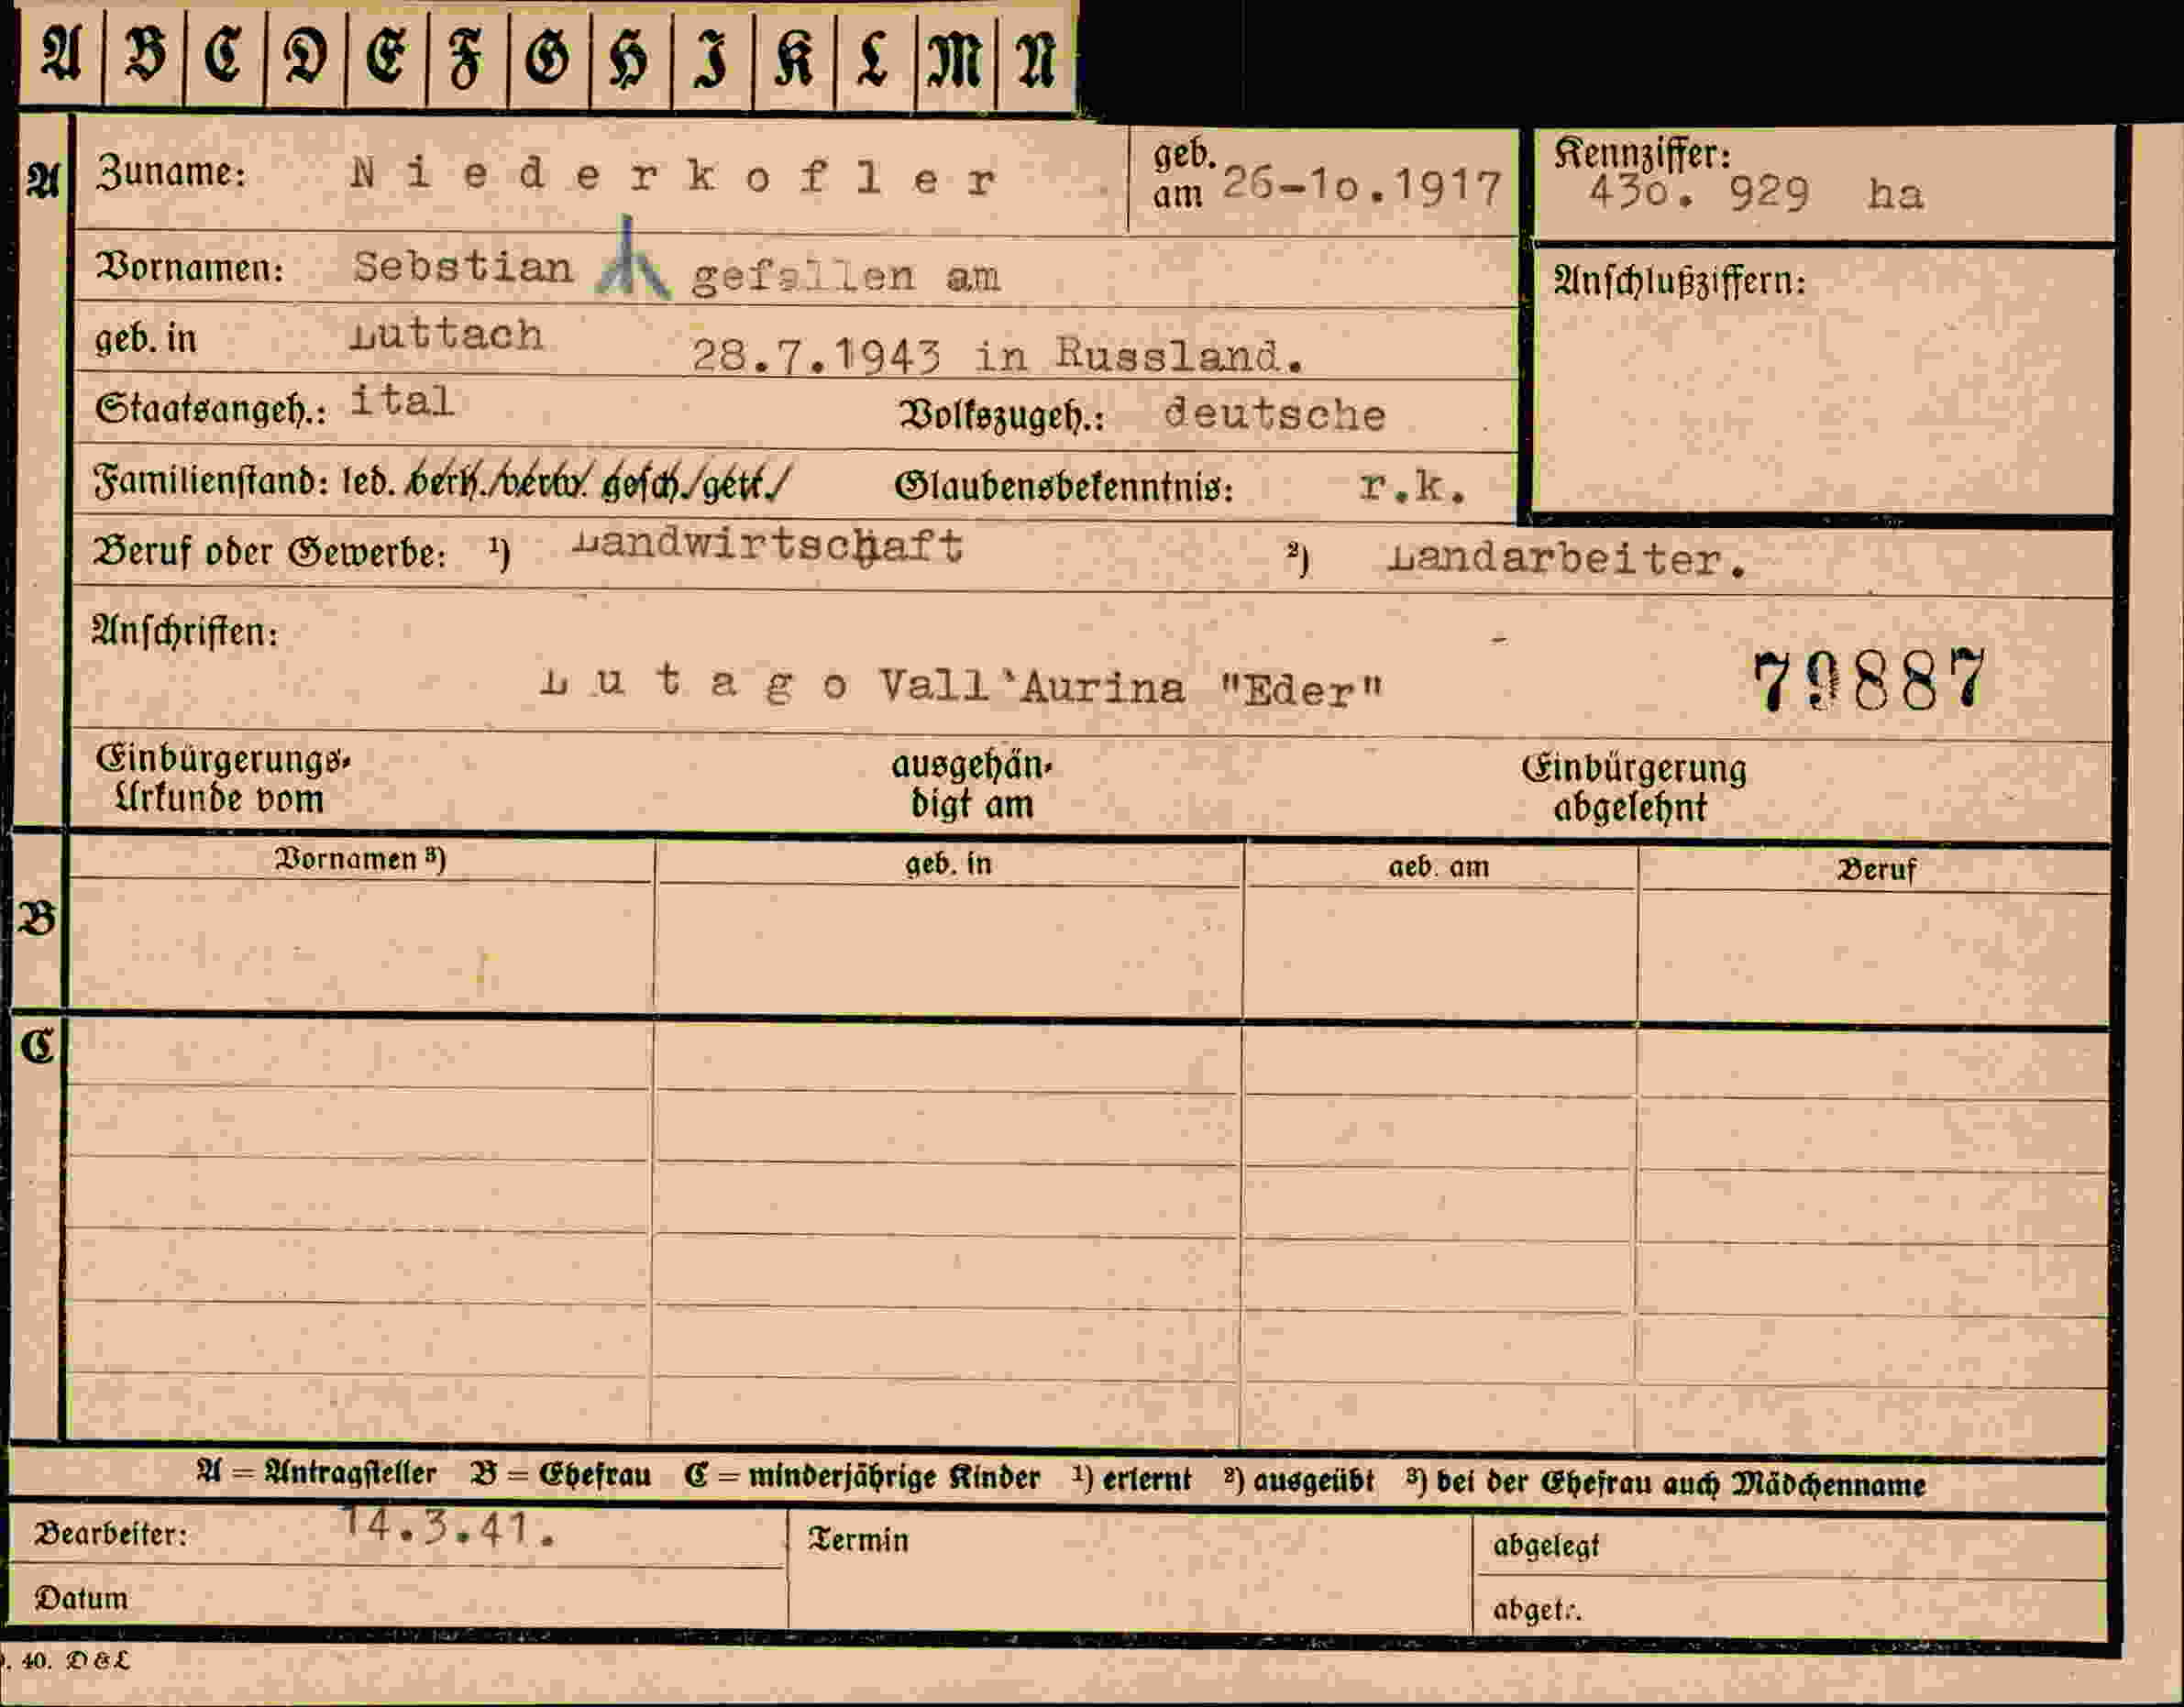 A B C D E F G H I K L M N
A Zuname: Niederkofler geb. am 26-1o.1917 Kennziffer: 43o. 929 ha
Vornamen: Sebstian gefallen am Anschlußziffern:
geb. in Luttach 28.7.1943 in Russland.
Staatsangeh.: ital Volkszugeh.: deutsche
Familienstand: led. verh./verw. gesch./getr./ Glaubensbekenntnis: r.k.
Beruf oder Gewerbe: ¹) Landwirtschaft ²) Landarbeiter.
Anschriften:
Lutago Vall'Aurina "Eder" 79887
Einbürgerungs- ausgehän- Einbürgerung
Urkunde vom digt am abgelehnt
Vornamen ³) geb. in geb. am Beruf
B
C
A = Antragsteller B = Ehefrau C = minderjährige Kinder ¹) erlernt ²) ausgeübt ³) bei der Ehefrau auch Mädchenname
Bearbeiter: 14.3.41. Termin abgelegt
Datum abgetr.
. 40. D & L